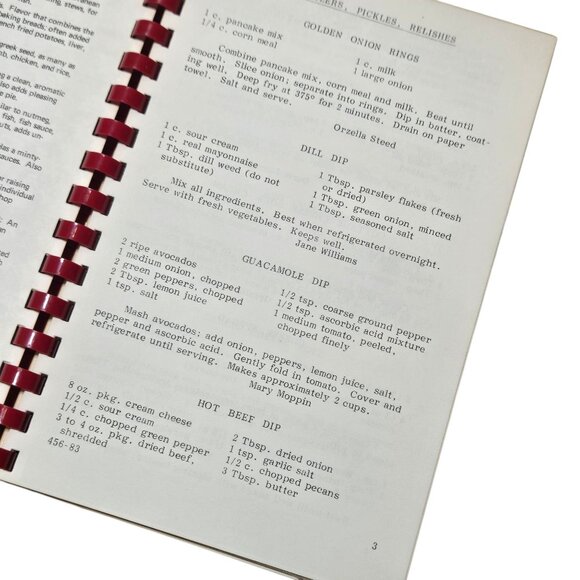 Flavor that combines the
baking breads, often added
french fried potatoes, liver,
greek seed, as many as
lamb, chicken, and rice,
a clean, aromatic
also adds pleasing
pie.
similar to nutmeg,
fish, fish sauce,
as a minty-
sauces. Also
or raising
individual
An
PICKLES, RELISHES
GOLDEN ONION RINGS
1 c. pancake mix
1/4 c. corn meal
1 c. milk
1 large onion
Combine pancake mix, corn meal and milk. Beat until
smooth. Slice onion; separate into rings. Dip in batter, coat-
ing well. Deep fry at 375° for 2 minutes. Drain on paper
towel. Salt and serve.
Orzella Steed
DILL DIP
1 c. sour cream
1 c. real mayonnaise
1 Tbsp. dill weed (do not
substitute)
1 Tbsp. parsley flakes (fresh
or dried)
1 Tbsp. green onion, minced
1 Tbsp. seasoned salt
Mix all ingredients. Best when refrigerated overnight.
Serve with fresh vegetables. Keeps well.
Jane Williams
GUACAMOLE DIP
2 ripe avocados
1 medium onion, chopped
2 green peppers, chopped
2 Tbsp. lemon juice
1 tsp. salt
1/2 tsp. coarse ground pepper
1/2 tsp. ascorbic acid mixture
1 medium tomato, peeled,
chopped finely
Mash avocados; add onion, peppers, lemon juice, salt,
pepper and ascorbic acid. Gently fold in tomato. Cover and
refrigerate until serving. Makes approximately 2 cups.
Mary Moppin
HOT BEEF DIP
8 oz. pkg. cream cheese
1/2 c. sour cream
1/4 c. chopped green pepper
3 to 4 oz. pkg. dried beef,
shredded
2 Tbsp. dried onion
1 tsp. garlic salt
1/2 c. chopped pecans
3 Tbsp. butter
456-83
3